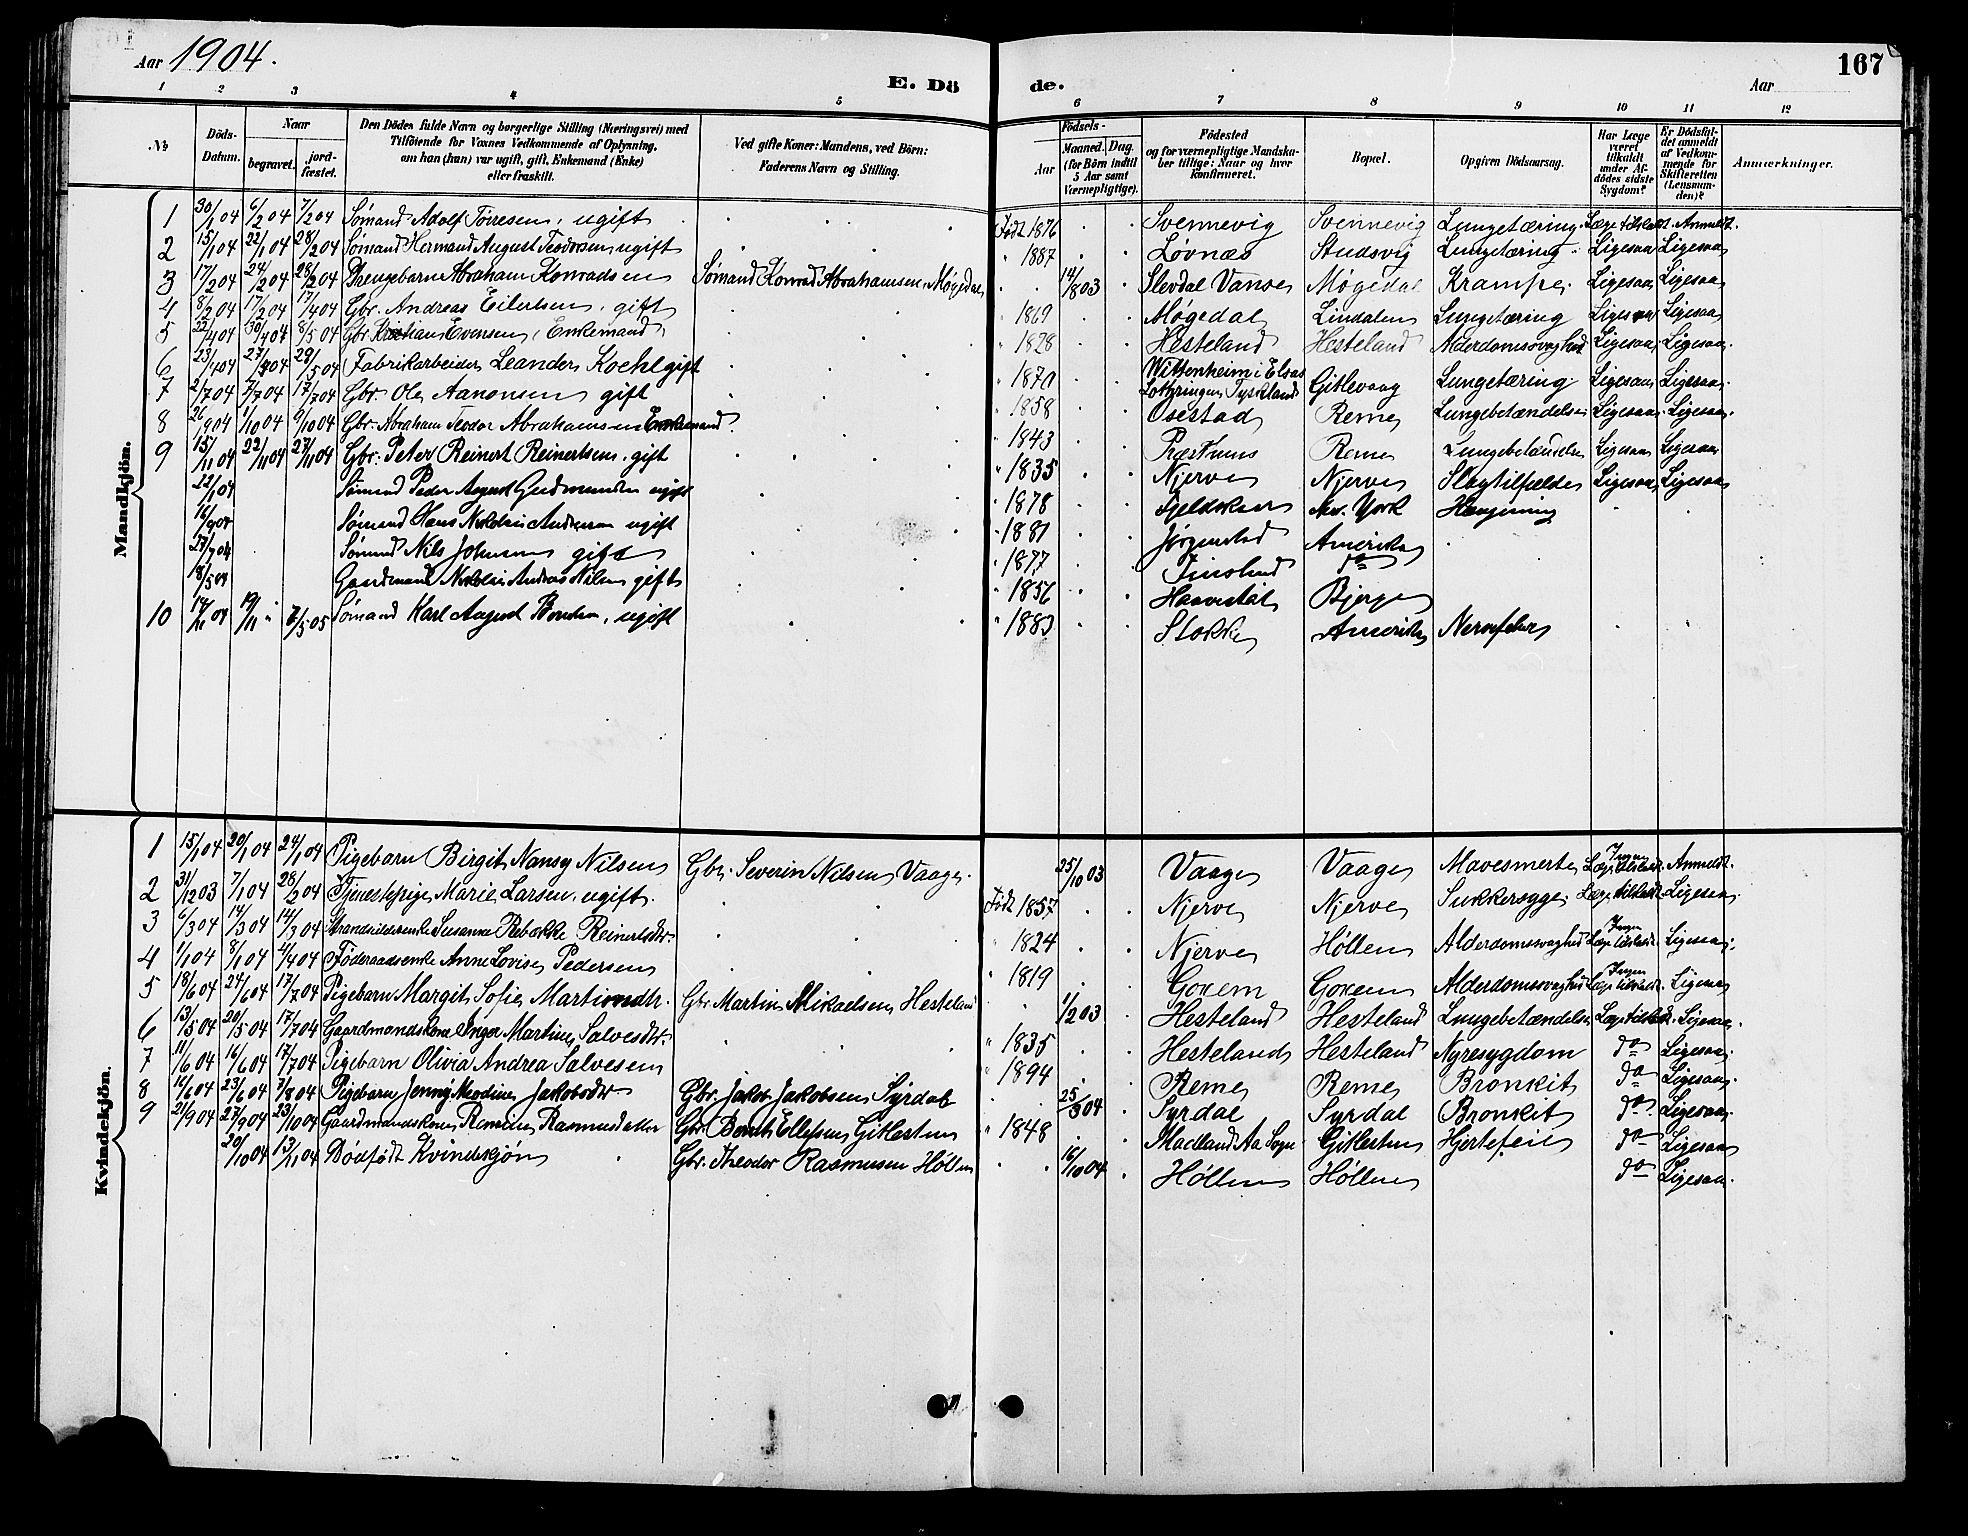 Aar 1904.
E. Dö
de.
Aar
167
1 2 3 4 5 6 7 8 9 10 11 12
№ Döds-Datum. Naar begravet. jord-fæstet. Den Dödes fulde Navn og borgerlige Stilling (Næringsvei) med Tilföiende for Voxnes Vedkommende af Oplysning, om han (hun) var ugift, gift, Enkemand (Enke) eller fraskilt. Ved gifte Koner: Mandens, ved Börn: Faderens Navn og Stilling. Födsels- Aar Maaned. Dag. (for Börn indtil 5 Aar samt Værnepligtige). Födested og for værnepligtige Mandskaber tillige: Naar og hvor konfirmeret. Bopæl. Opgiven Dödsaarsag. Har Læge været tilkaldt under Afdödes sidste Sygdom? Er Dödsfaldet anmeldt af Vedkommende for Skifteretten (Lensmanden)? Anmærkninger.
Mandkjön.
1 30/1 04 6/2 04 7/2 04 Sømand Adolf Töresen, ugift Födt 1876 Svennevig Svennevig Lungetæring Læge tilkaldt. Anmeldt.
2 15/1 04 22/1 04 28/2 04 Sømand Hermand August Teodorsen, ugift 1887 Løvnæs Studsvig Lungetæring Ligesaa Ligesaa
3 17/2 04 24/2 04 28/2 04 Drengebarn Abraham Konradsen Sømand Konrad Abrahamsen, Møgedal 14/8 03 Slevdal Vanse Møgedal Krampe Ligesaa Ligesaa
4 8/2 04 17/2 04 17/4 04 Gbr. Andreas Eilertsen, gift 1869 Møgedal Lindalen Lungetæring Ligesaa Ligesaa
5 22/4 04 30/4 04 8/5 04 Gbr. Evensen, Enkemand 1828 Hesteland Hesteland Alderdomssvaghed Ligesaa Ligesaa
6 23/4 04 27/ 04 29/5 04 Fabrikarbeider Leander Koehl gift 1870 Wittenheim i Elsas Lothringen, Tyskland Gitlevaag Lungetæring Ligesaa Ligesaa
7 2/7 04 7/7 04 17/7 04 Gbr. Ole Aanonsen gift 1858 Osestad Reme Lungebetændelse Ligesaa Ligesaa
8 26/9 04 1/10 04 9/10 04 Gbr. Abraham Teodor Abrahamsen Enkemand 1843 Reme Lungebetændelse Ligesaa Ligesaa
9 15/11 04 22/11 04 27/11 04 Gbr. Peter Reinert Reinertsen, gift 1835 Njerve Njerve Slagtilfælde Ligesaa Ligesaa
22/1 04 Sømand Peder August ugift 1878 New. York
16/9 04 Sømand Hans Nikolai Andersen ugift 1881 Amerika
27/7 04 Sømand Nils Johnsen gift 1877 do
18/5 04 Gaardmand Nikolai Andreas Nilsen gift 1856
10 14/11 04 19/11 7/5 05 Sømand Karl August ugift 1883 Stokke Amerika
Kvindekjön.
1 15/1 04 20/1 04 24/1 04 Pigebarn Birgit Nansy Nilsen Gbr. Severin Nilsen Vaage. 25/10 03 Vaage Vaage Mavesmerte Ingen Læge tilkaldt Anmeldt.
2 31/12 03 7/1 04 28/2 04 Tjenestepige Marie Larsen, ugift. Födt 1857 Njerve Njerve Sukkersyge Læge tilkaldt Ligesaa
3 6/3 04 14/3 04 14/3 04 Susanne Rebække Reinertsdtr. 1824 Njerve Høllen Alderdomssvaghed Ingen Læge tilkaldt Ligesaa
4 1/1 04 8/1 04 4/4 04 Föderaadsenke Anne Lovise Pedersen 1819 Goxem Goxem Alderdomssvaghed Ingen Læge tilkaldt Ligesaa
5 18/6 04 24/6 04 17/7 04 Pigebarn Margit Sofie Martinsdtr. Gbr. Martin Mikaelsen, Hesteland 1/2 03 Hesteland Hesteland Lungebetændelse Læge tilkaldt. Ligesaa
6 13/5 04 20/5 04 17/7 04 Gaardmandskone Inger Martine Salvesdtr. 1835 Hesteland Hesteland Nyresygdom do Ligesaa
7 11/6 04 16/6 04 17/7 04 Pigebarn Olivia Andrea Salvesen 1894 Reme Reme Bronkit do Ligesaa
8 16/6 04 23/6 04 7/8 04 Pigebarn Jenny Jakobsdtr Gbr. Jakob Jakobsen Syrdal 25/3 04 Syrdal Syrdal Bronkit do Ligesaa
9 21/9 04 27/9 04 23/10 04 Gaardmandskone Rasmusdatter Gbr. Bernt Ellefsen, Gitlesten 1848 Gitlesten Hjertefeil do Ligesaa
20/10 04 13/11 04 Dödfödt Kvindekjön Gbr. Theodor Rasmussen Höllen 16/10 04 Höllen Höllen do Ligesaa